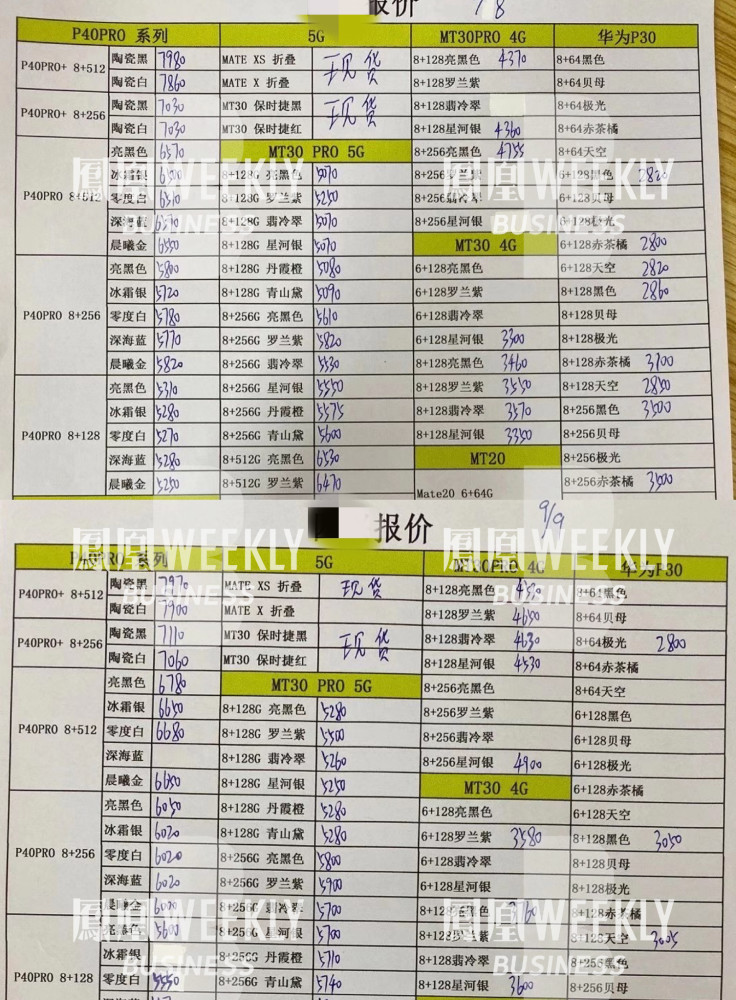 报价 /8
P40PRO 系列 5G MT30PRO 4G 华为P30
P40PRO+ 8+512 陶瓷黑 7980 MATE XS 折叠 现货 8+128亮黑色 4370 8+64黑色
陶瓷白 7860 MATE X 折叠 8+128罗兰紫 8+64贝母
P40PRO+ 8+256 陶瓷黑 7030 MT30 保时捷黑 现货 8+128翡冷翠 8+64极光
陶瓷白 7030 MT30 保时捷红 8+128星河银 4360 8+64赤茶橘
P40PRO 8+512 亮黑色 6570 MT30 PRO 5G 8+256亮黑色 4755 8+64天空
冰霜银 8+128G 亮黑色 5070 8+256罗兰紫 6+128黑色 2820
零度白 8+128G 罗兰紫 5250 8+256翡冷翠 6+128贝母
深海蓝 6570 8+128G 翡冷翠 5070 8+256星河银 6+128极光
晨曦金 6550 8+128G 星河银 5070 MT30 4G 6+128赤茶橘 2800
P40PRO 8+256 亮黑色 5800 8+128G 丹霞橙 5080 6+128亮黑色 6+128天空 2820
冰霜银 5720 8+128G 青山黛 5090 6+128罗兰紫 8+128黑色 2860
零度白 5780 8+256G 亮黑色 5610 6+128翡冷翠 8+128贝母
深海蓝 5770 8+256G 罗兰紫 5820 6+128星河银 3300 8+128极光
晨曦金 5820 8+256G 翡冷翠 5530 8+128亮黑色 3460 8+128赤茶橘 3100
P40PRO 8+128 亮黑色 5310 8+256G 星河银 5550 8+128罗兰紫 3550 8+128天空 2850
冰霜银 5280 8+256G 丹霞橙 5575 8+128翡冷翠 3570 8+256黑色 3500
零度白 5270 8+256G 青山黛 5600 8+128星河银 3350 8+256贝母
深海蓝 5280 8+512G 亮黑色 6530 MT20 8+256极光
晨曦金 5250 8+512G 罗兰紫 6470 Mate20 6+64G 8+256赤茶橘 3500
凰WEEKLY
BUSINESS
凰WEEKLY
BUSINESS
报价 9/9
P40PRO 系列 5G MT30PRO 4G 华为P30
P40PRO+ 8+512 陶瓷黑 7970 MATE XS 折叠 现货 8+128亮黑色 8+64黑色
陶瓷白 7900 MATE X 折叠 8+128罗兰紫 4650 8+64贝母
P40PRO+ 8+256 陶瓷黑 7110 MT30 保时捷黑 现货 8+128翡冷翠 4630 8+64极光 2800
陶瓷白 7060 MT30 保时捷红 8+128星河银 4530 8+64赤茶橘
P40PRO 8+512 亮黑色 6780 MT30 PRO 5G 8+256亮黑色 8+64天空
冰霜银 6650 8+128G 亮黑色 5280 8+256罗兰紫 6+128黑色
零度白 6680 8+128G 罗兰紫 5500 8+256翡冷翠 6+128贝母
深海蓝 8+128G 翡冷翠 5260 8+256星河银 4900 6+128极光
晨曦金 6650 8+128G 星河银 5250 MT30 4G 6+128赤茶橘
P40PRO 8+256 亮黑色 6050 8+128G 丹霞橙 5280 6+128亮黑色 6+128天空
冰霜银 6020 8+128G 青山黛 5280 6+128罗兰紫 3580 8+128黑色 3050
零度白 6020 8+256G 亮黑色 5800 6+128翡冷翠 8+128贝母
深海蓝 6020 8+256G 罗兰紫 5900 6+128星河银 8+128极光
晨曦金 8+256G 翡冷翠 5700 8+128亮黑色 8+128赤茶橘
P40PRO 8+128 亮黑色 5600 8+256G 星河银 5700 8+128罗兰紫 8+128天空 3005
冰霜银 8+256G 丹霞橙 5710 8+128翡冷翠 8+256黑色
零度白 5550 8+256G 青山黛 5740 8+128星河银 3600 8+256贝母
凤凰WEEKLY
BUSINESS
凰WEEKLY
BUSINESS
凤凰WEEKLY
BUSINESS
凰WEEKLY
BUSINESS